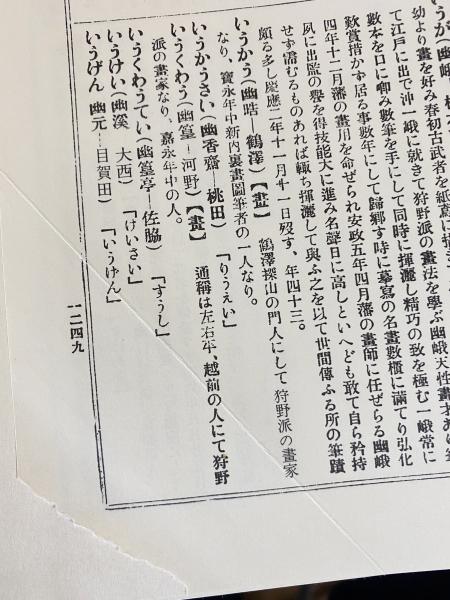 幼より畫を好み春初古武者を紙鳶に描
て江戸に出で沖一峨に就きて狩野派の畫法を學ぶ幽峨天性畫才
數本を口に啣み數筆を手にして同時に揮灑し精巧の致を極む一峨常に
歎賞措かず居る事數年にして歸郷す時に摹寫の名畫數櫃に滿てり弘化
四年十二月藩の畫川を命ぜられ安政五年四月藩の畫師に任ぜらる幽峨
夙に出藍の譽を得技能大に進み名聲日に高しといへども敢て自ら矜持
せず需むるものあれば輒ち揮灑して與ふ之を以て世間傳ふる所の筆蹟
頗る多し慶應二年十一月十一日歿す、年四十三。
いうかう(幽皓―鶴澤)【畫】 鶴澤探山の門人にして狩野派の畫家
なり、寶永年中新内裏畫圖筆者の一人なり。
いうかうさい(幽香齋 桃田) 「りうえい」
いうくわう(幽篁―河野)【畫】 通稱は左右平、越前の人にて狩野
派の畫家なり、嘉永年中の人。
いうくわうてい(幽篁亭―佐脇) 「すうし」
いうけい(幽溪 大西) 「けいさい」
いうげん(幽元―目賀田) 「いうけん」
一二四九